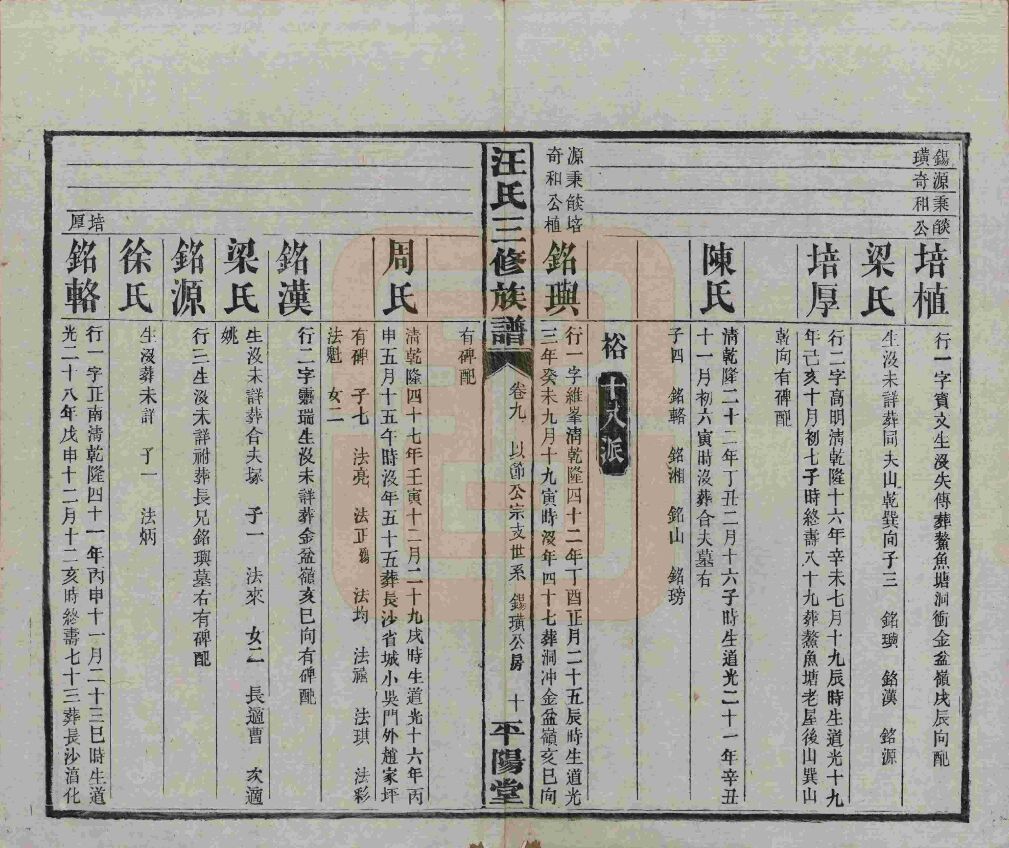 錫源秉燄
璜奇和公
培植
行一字寶文生沒失傳葬鰲魚塘洞衝金盆嶺戌辰向配
梁氏
生沒未詳葬同夫山乾巽向子三 銘璵 銘漢 銘源
培厚
行二字高明清乾隆十六年辛未七月十九辰時生道光十九
年己亥十月初七子時終壽八十九葬鰲魚塘老屋後山巽山
乾向有碑配
陳氏
清乾隆二十二年丁丑二月十六子時生道光二十一年辛丑
十一月初六寅時沒葬合夫墓右
子四 銘輅 銘湘 銘山 銘琇
裕
十八派
源秉燄培
奇和公植
銘璵
行一字維峯清乾隆四十二年丁酉正月二十五辰時生道光
三年癸未九月十九寅時沒年四十七葬洞冲金盆嶺亥巳向
汪氏三修族譜
卷九
以節公宗支世系 錫璜公房
十
平陽堂
有碑配
周氏
清乾隆四十七年壬寅十二月二十九戌時生道光十六年丙
申五月十五午時沒年五十五葬長沙省城小吳門外趙家坪
有碑 子七 法亮 法正 法均 法禧 法琪 法彩
法魁 女二
銘漢
行二字靈瑞生沒未詳葬金盆嶺亥巳向有碑配
梁氏
生沒未詳葬合夫塚 子一 法來 女二 長適曹 次適
姚
銘源
行三生沒未詳祔葬長兄銘璵墓右有碑配
徐氏
生沒葬未詳 子一 法炳
培厚
銘輅
行一字正南清乾隆四十一年丙申十一月二十三巳時生道
光二十八年戊申十二月十二亥時終壽七十三葬長沙淯化